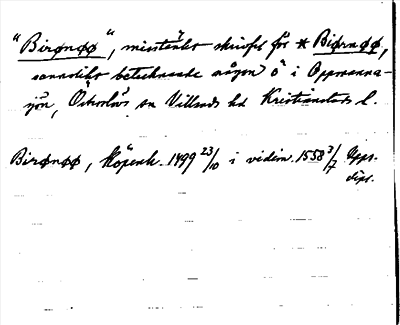 "Birønøø", misstänkt skrivfel för * Biørnøø,
sannolikt betecknade någon ö i Oppmanna-
sjön, Österslövs sn Villands hd Kristianstads l.
Birønøø, Köpenh. 1499 23/10 i vidim. 1558 3/7 Upps.
dipl.